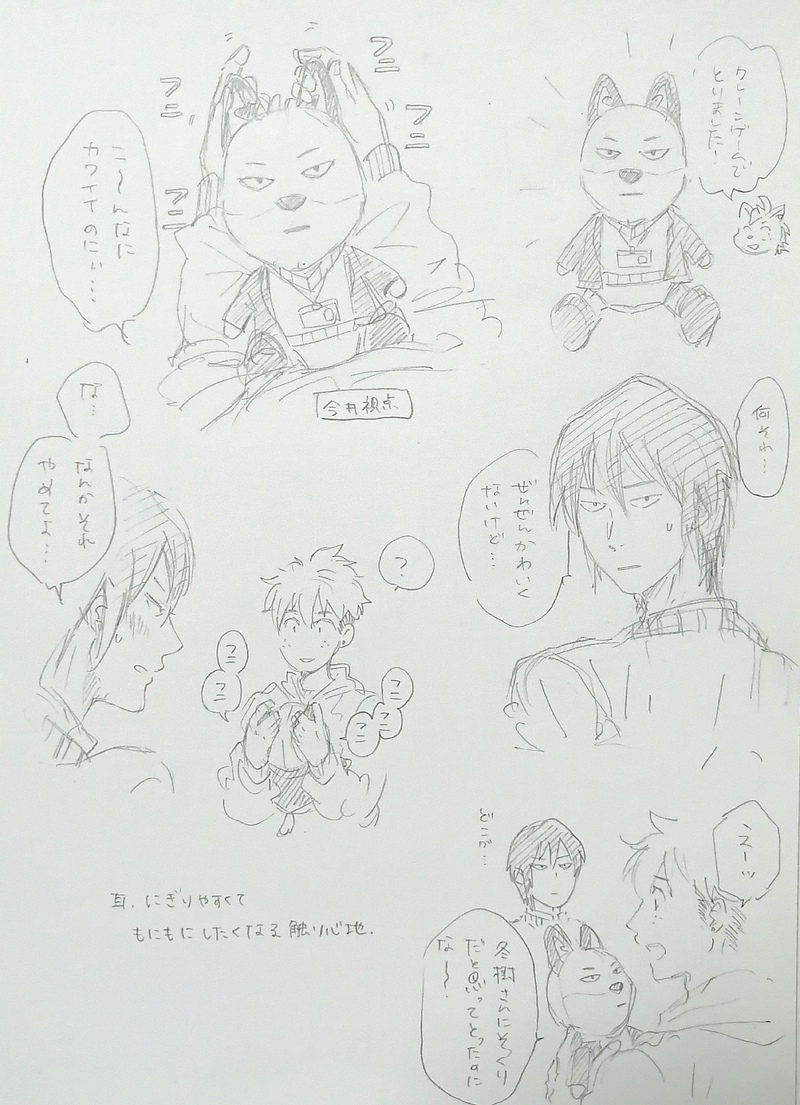 クレーンゲームで
とりました!
フニ
フニ
フニ
フニ
こ〜んなに
カワイイのにぃ…
今井視点
何それ…
ぜんぜんかわいく
ないけど…
な…
なんかそれ
やめてよ…
?
フニ
フニ
フニ
フニ
フニ
えーッ
どこが…
冬樹さんにそっくり
だと思ってとったのに
な〜
耳、にぎりやすくて
もにもにしたくなる触り心地.